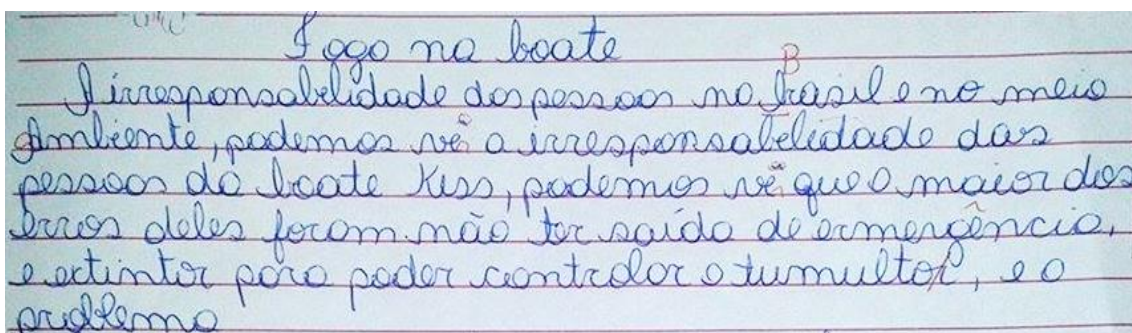 Fogo na boate
B
A irresponsabelidade das pessoas no brasil e no meio
Ambiente, podemos vê a irresponsabelidade das
pessoas da boate Kiss, podemos vê que o maior dos
erros deles foram não ter saída de ermergência,
e extintor para poder controlar o tumulto, e o
problema